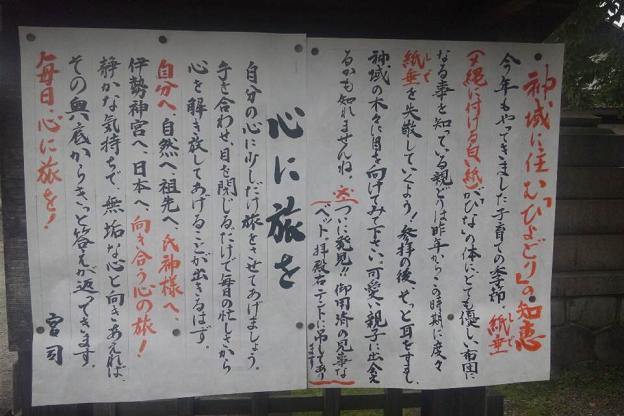 神域に住む「ひよどり」の知恵
今年もやってきました子育ての季節、紙垂
しで
(〆縄に付ける白い紙)が“ひな”の体にとても優しい布団に
なる事を知っている親どりは昨年からこの時期に度々
紙垂を失敬していたよう!参拝の後、そっと耳をすまし
しで
神域の木々に目を向けてみて下さい、可愛い親子に出会え
るかも知れませんね。
ついに発見!!御用済の見事な
ベット、拝殿右テントに吊してあり
ます
心に旅を
自分の心に少しだけ旅をさせてあげましょう。
手を合わせ、目を閉じる、だけで毎日の忙しさから
心を解き放してあげることが出きるはず。
自分へ、自然へ、祖先へ、氏神様へ、
伊勢神宮へ、日本へ、向き合う心の旅!
静かな気持ちで、無垢な心と向きあえれば
その奥底からきっと答えが返ってきます。
毎日、心に旅を!
宮司